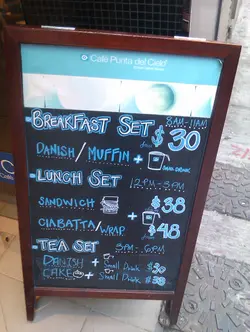 Café Punta del Cielo
BREAKFAST SET 8AM-11AM
from $30
DANISH/MUFFIN +
LUNCH SET 12PM-3PM
SANDWICH $38
+
CIABATTA/WRAP $48
TEA SET 3PM-6PM
DANISH + Small Drink $30
CAKE + Small Drink